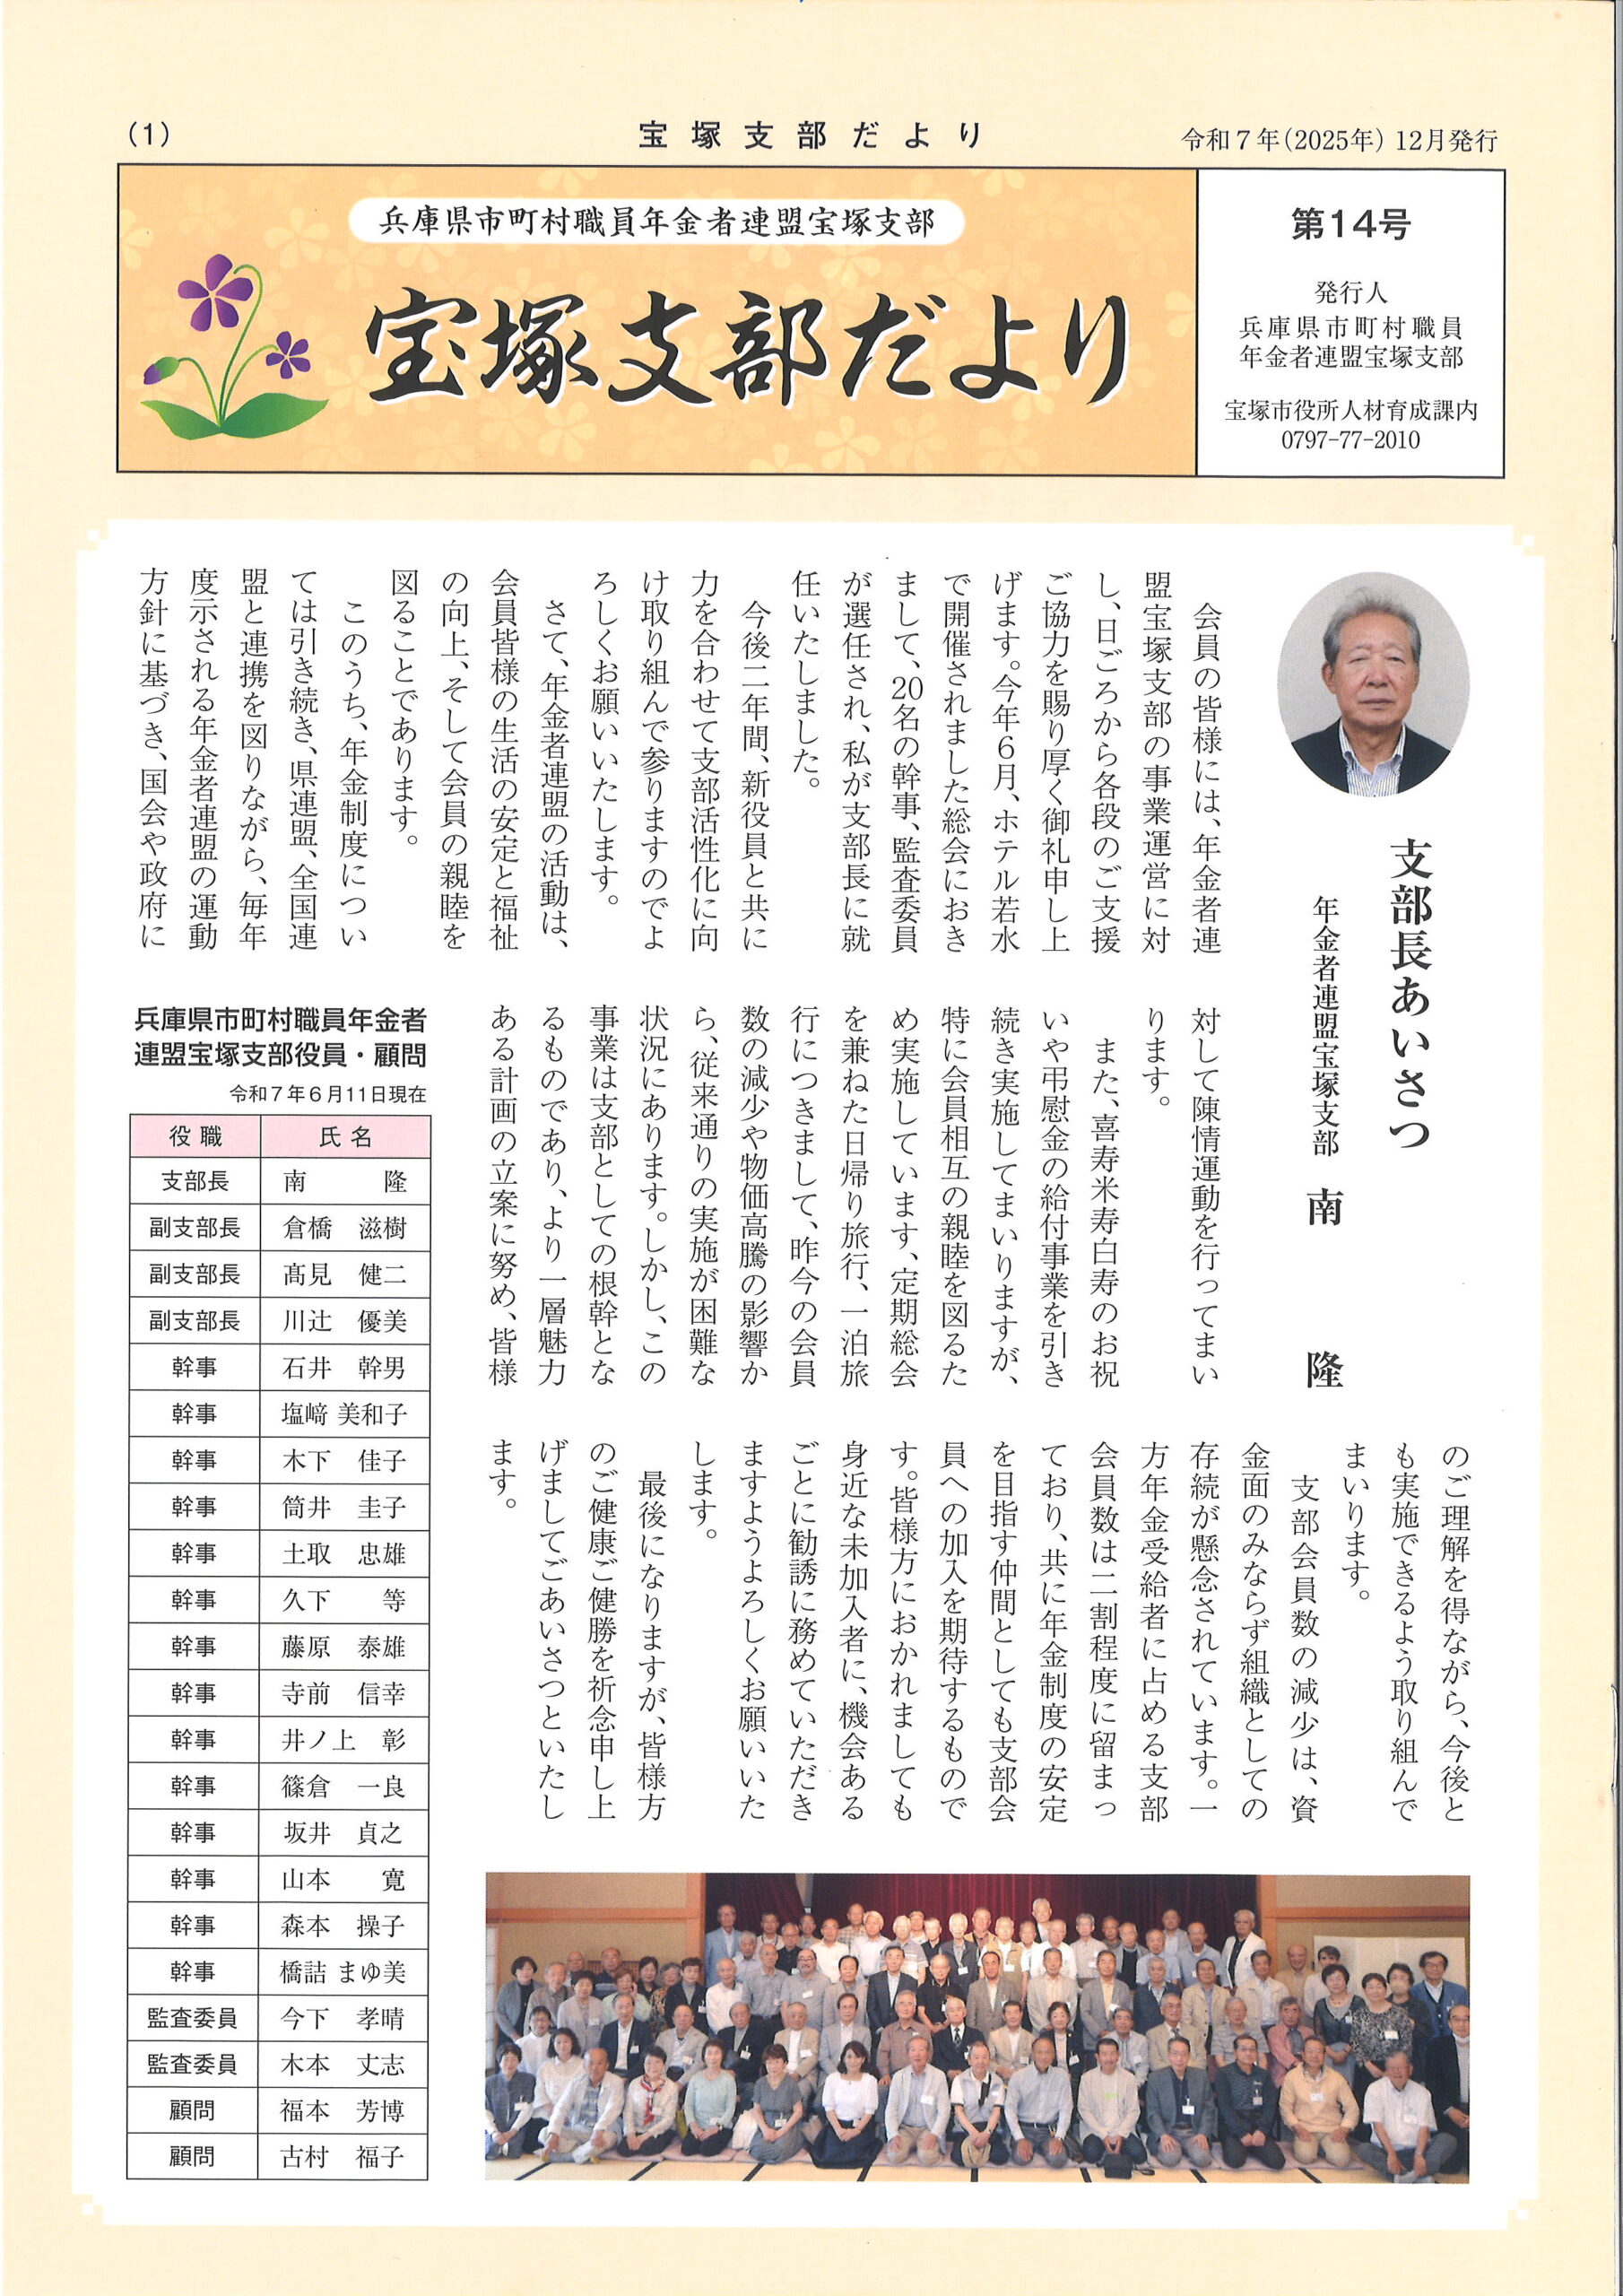 (1)
宝塚支部だより
令和7年(2025年) 12月発行
兵庫県市町村職員年金者連盟宝塚支部
宝塚支部だより
第14号
発行人
兵庫県市町村職員
年金者連盟宝塚支部
宝塚市役所人材育成課内
0797-77-2010
支部長あいさつ
年金者連盟宝塚支部 南 隆
会員の皆様には、年金者連
盟宝塚支部の事業運営に対
し、日ごろから各段のご支援
ご協力を賜り厚く御礼申し上
げます。今年6月、ホテル若水
で開催されました総会におき
まして、20名の幹事、監査委員
が選任され、私が支部長に就
任いたしました。
今後二年間、新役員と共に
力を合わせて支部活性化に向
け取り組んで参りますのでよ
ろしくお願いいたします。
さて、年金者連盟の活動は、
会員皆様の生活の安定と福祉
の向上、そして会員の親睦を
図ることであります。
このうち、年金制度につい
ては引き続き、県連盟、全国連
盟と連携を図りながら、毎年
度示される年金者連盟の運動
方針に基づき、国会や政府に
対して陳情運動を行ってまい
ります。
また、喜寿米寿白寿のお祝
いや弔慰金の給付事業を引き
続き実施してまいりますが、
特に会員相互の親睦を図るた
め実施しています、定期総会
を兼ねた日帰り旅行、一泊旅
行につきまして、昨今の会員
数の減少や物価高騰の影響か
ら、従来通りの実施が困難な
状況にあります。しかし、この
事業は支部としての根幹とな
るものであり、より一層魅力
ある計画の立案に努め、皆様
のご理解を得ながら、今後と
も実施できるよう取り組んで
まいります。
支部会員数の減少は、資
金面のみならず組織としての
存続が懸念されています。一
方年金受給者に占める支部
会員数は二割程度に留まっ
ており、共に年金制度の安定
を目指す仲間としても支部会
員への加入を期待するもので
す。皆様方におかれましても
身近な未加入者に、機会ある
ごとに勧誘に務めていただき
ますようよろしくお願いいた
します。
最後になりますが、皆様方
のご健康ご健勝を祈念申し上
げましてごあいさつといたし
ます。
兵庫県市町村職員年金者
連盟宝塚支部役員・顧問
令和7年6月11日現在
役職 氏名
支部長 南 隆
副支部長 倉橋 滋樹
副支部長 髙見 健二
副支部長 川辻 優美
幹事 石井 幹男
幹事 塩﨑 美和子
幹事 木下 佳子
幹事 筒井 圭子
幹事 土取 忠雄
幹事 久下 等
幹事 藤原 泰雄
幹事 寺前 信幸
幹事 井ノ上 彰
幹事 篠倉 一良
幹事 坂井 貞之
幹事 山本 寛
幹事 森本 操子
幹事 橋詰 まゆ美
監査委員 今下 孝晴
監査委員 木本 丈志
顧問 福本 芳博
顧問 古村 福子